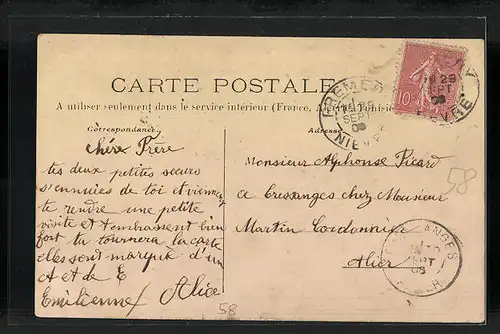 CARTE POSTALE
A utiliser seulement dans le service intérieur (France, Algérie, Tunisie
Correspondance
Adresse
chère Frère
tes deux petites sœurs
s'ennuiees de toi et vienne
te rendre une petite
visite et t'embrassent bien
fort tu tournera la carte
elles sont marqué d'un
A et de E
Emilienne / Alice
Monsieur Alphonse Picard
a Cressanges chez Monsieur
Martin Cordonnier
Alier
58
58
PREMERY
29
SEPT
08
NIEVRE
10
29
SEPT
08
NIEVRE
ANGES
SEPT
08
ALLIER